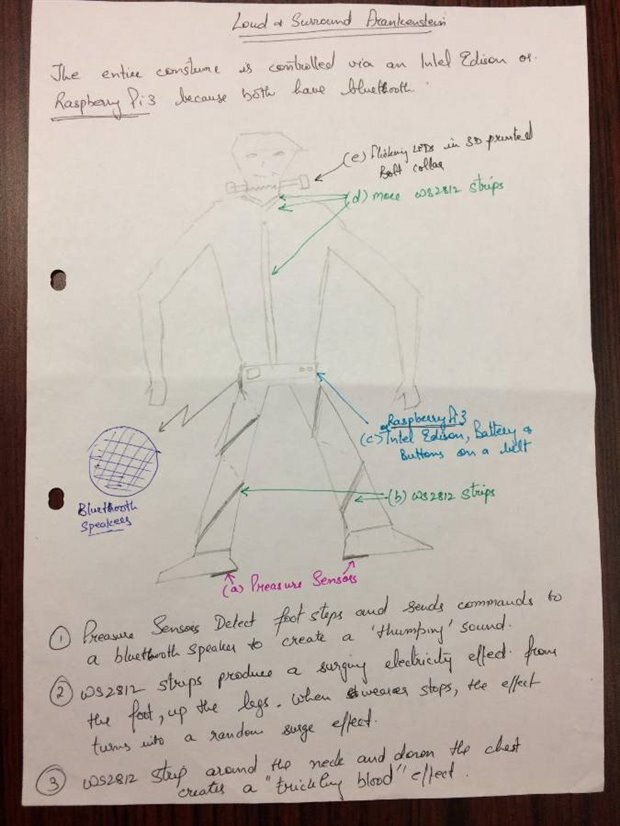 Loud & Surround Frankenstein
The entire constume is controlled via an Intel Edison or
Raspberry Pi 3 because both have bluethooth.
(e) Flickring LEDs in 3D printed
Bolt collar
(d) more WS2812 strips
Raspberry Pi 3
(c) Intel Edison, Battery &
Buttons on a belt
Bluethooth
Speakers
(b) WS2812 strips
(a) Preasure Sensors
① Preasure Sensors Detect foot steps and sends commands to
a bluethooth speaker to create a 'thumping' sound.
② WS2812 strips produce a surging electricity effect from
the foot, up the legs. When wearer stops, the effect
turns into a random surge effect.
③ WS2812 strip around the neck and down the chest
creates a "trickling blood" effect.